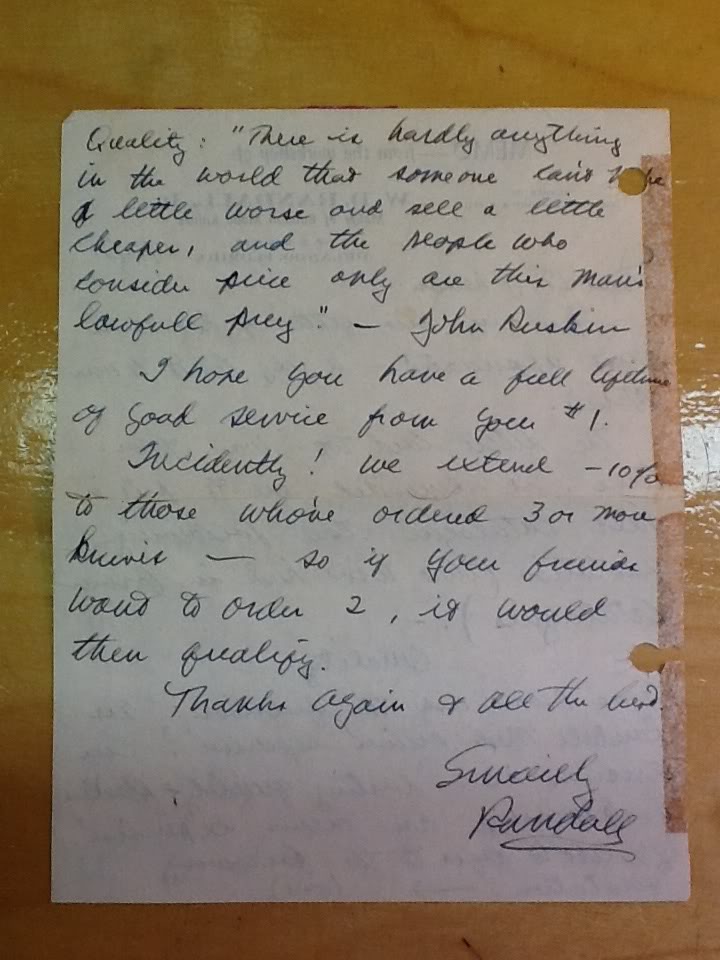 Quality: "There is hardly anything
in the world that someone can't
a little worse and sell a little
cheaper, and the people who
consider price only are this man's
lawfull prey." — John Ruskin
I hope you have a full lifetime
of good service from your #1.
Incidently! we extend -10%
to those who've ordered 3 or more
knives — so if your friends
want to order 2, it would
then qualify.
Thanks again & all the best.
Sincerely
Randall